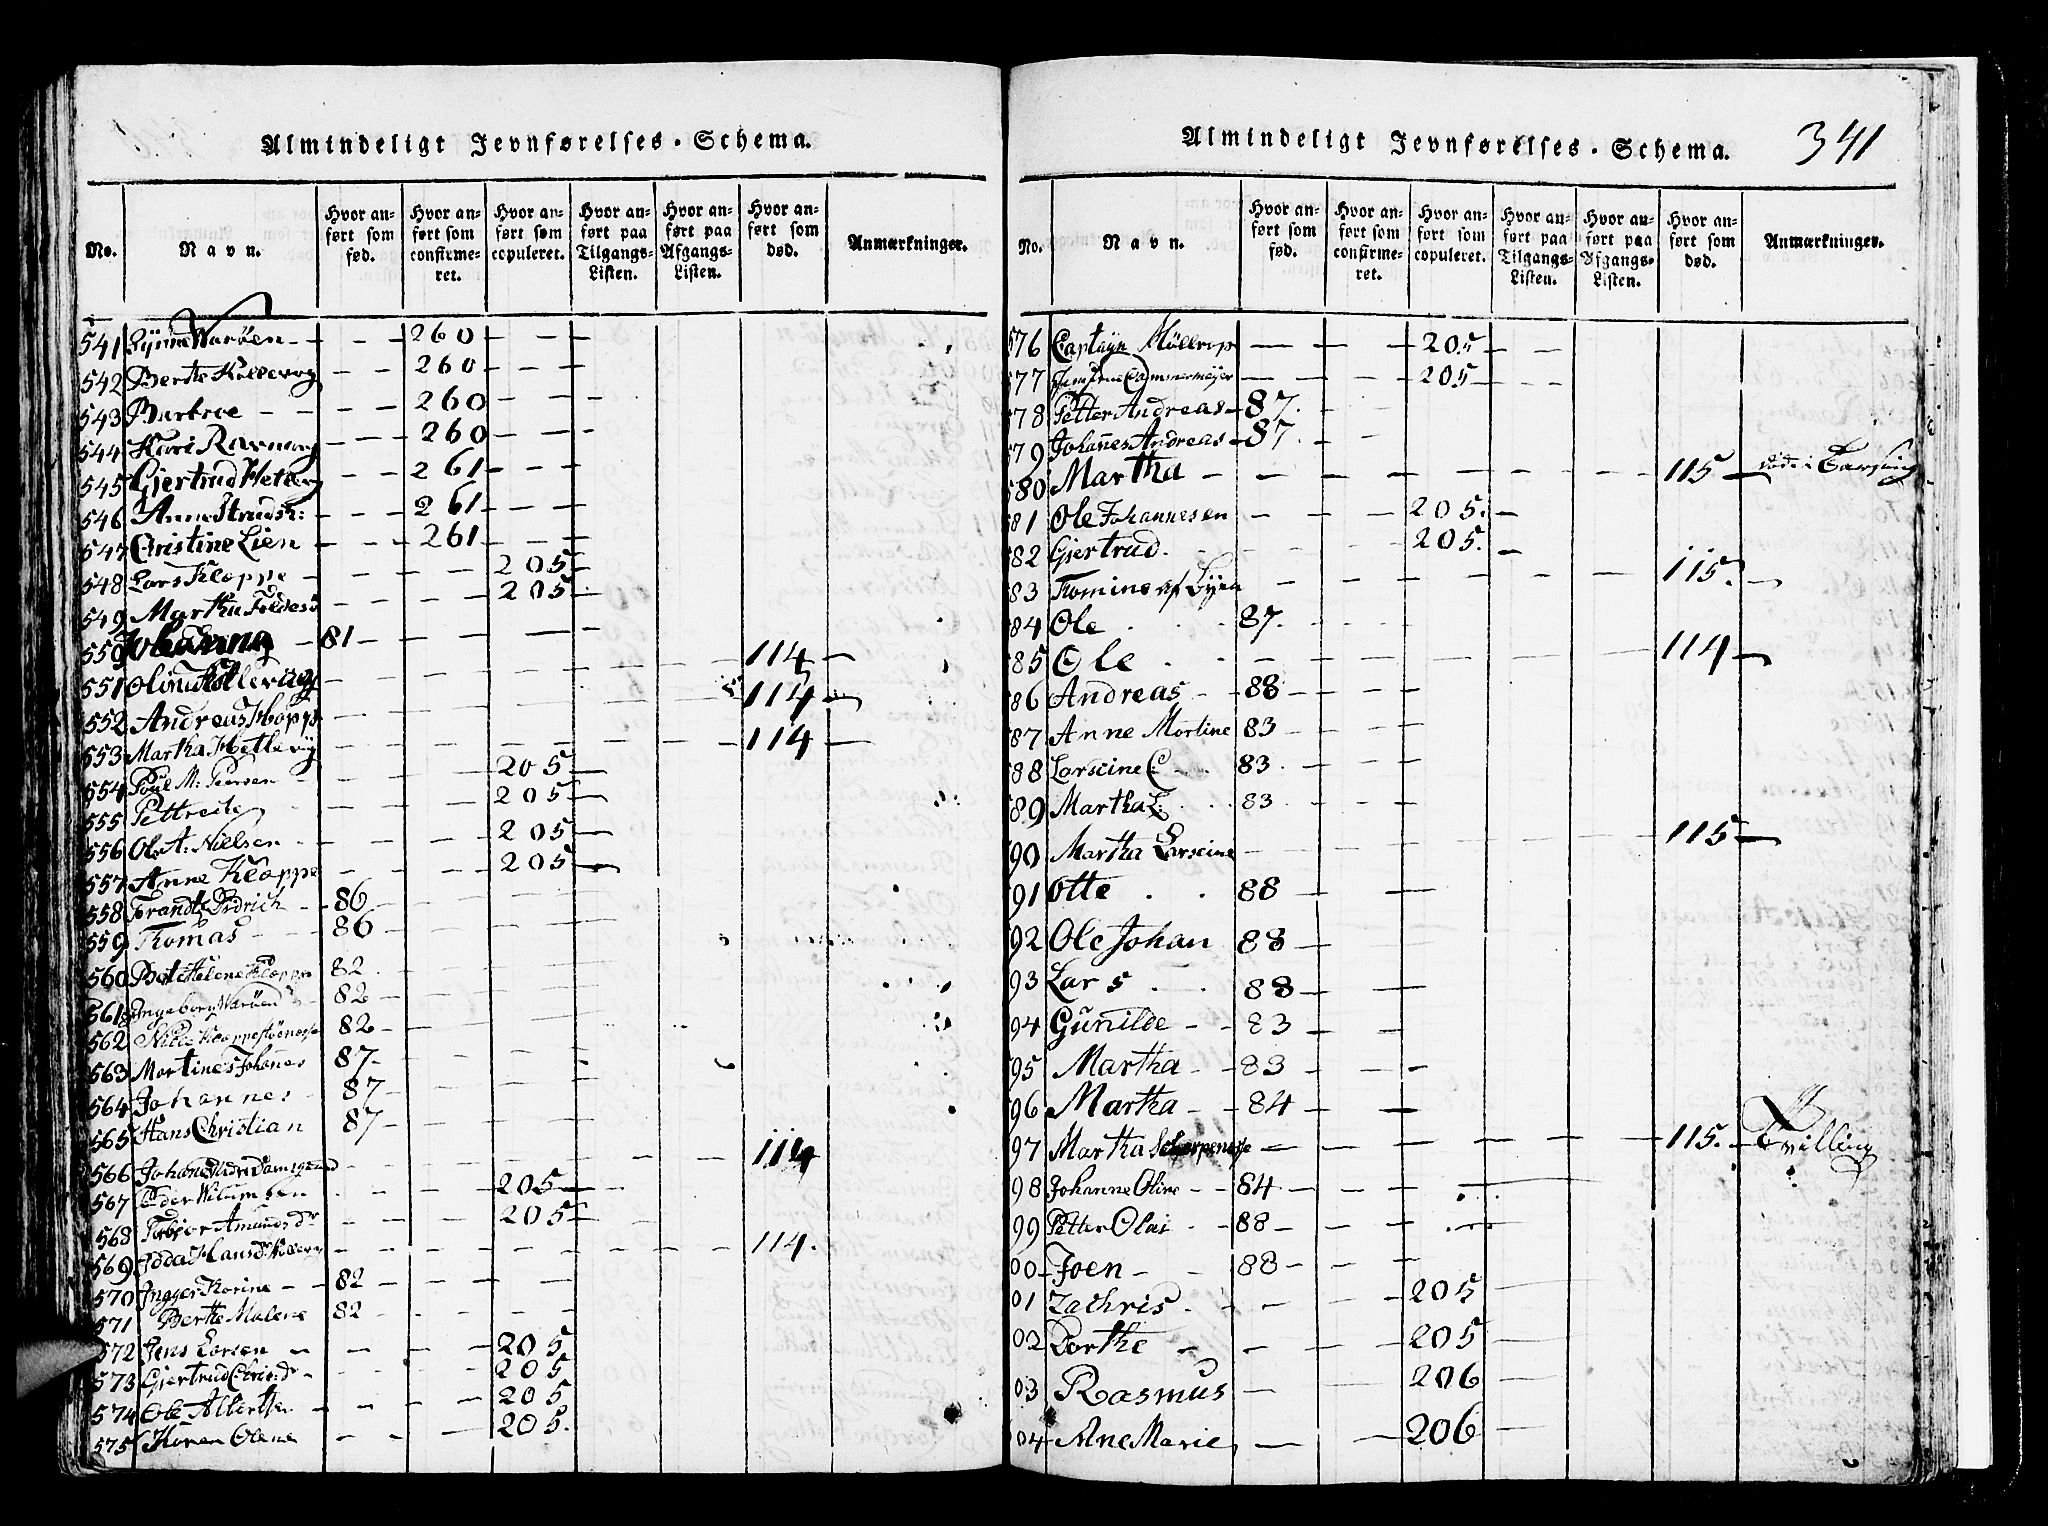 Almindeligt Jevnførelses-Schema.
No. Navn. Hvor anført som fød. Hvor anført som confirmeret. Hvor anført som copuleret. Hvor anført paa Tilgangs-Listen. Hvor anført paa Afgangs-Listen. Hvor anført som død. Anmærkninger.
541 Lÿnne Waröen - - 260 - -
542 Berthe Kollevog - - 260 - -
543 Bartroe - - 260 - -
544 Kari Ravnaag - - 260 - -
545 Giertrud Hetlevg - - 261 - -
546 Anne Strudsh: - - 261 - -
547 Christine Lien - - 261 - -
548 Lars Kloppe - - - 205 -
549 Martha Foldes - - - 205 -
550 Johanna - 81 - - -
551 Oline Kollevog - - - - - 114 -
552 Andreas Klopp - - - - - 114 -
553 Martha Hetlevÿ - - - - - 114 -
554 Poul M: Peersen - - - 205 -
555 Pettrede - - - 205 -
556 Ole A: Nielsen - - - 205 -
557 Anne Kloppe - - - 205 -
558 Frandtz Didrich - 86 - - -
559 Thomas - 86 - - -
560 Berte Helene Kloppe 82 - - -
561 Ingeborg Waröen 82 - - -
562 Niels Kloppe 82 - - -
563 Mortines Johanes 87 - - -
564 Johannes 87 - - -
565 Hans Christian 87 - - -
566 Johane Nedre Damsgaard - - - - - 114
567 Peder Wilumsen - - - 205 -
568 Torbior Amunds dr - - - 205 -
569 Hans dr - - - - - 114.
570 Ingger Korine - 82 - - -
571 Berthe Malene 82 - - -
572 Jens Larsen - - - 205
573 Giertrud Chris: dr - - - 205
574 Ole Albertsen - - - 205
575 Karen Olene - - - 205.
Almindeligt Jevnførelses-Schema. 341
No. Navn. Hvor anført som fød. Hvor anført som confirmeret. Hvor anført som copuleret. Hvor anført paa Tilgangs-Listen. Hvor anført paa Afgangs-Listen. Hvor anført som død. Anmærkninger.
576 Captayn Möllrop - - 205 - -
577 Cammermeyer - - 205 - -
78 Petter Andreas - 87. - -
79 Johannes Andreas - 87. - -
80 Martha - - - - - - 115 - død i Barsling
81 Ole Johannesen - - 205. -
82 Giertrud. - - 205. -
83 Tomine af Byen - - - - - 115. -
84 Ole . . 87. - - -
85 Ole . - - - - - 114 -
86 Andreas - 88 - - -
87 Anne Mortine 83 - - -
88 Larseine C. - 83. - -
89 Martha L: . . 83 - -
90 Martha Larseine - - - - - 115 -
91 Otte . . 88 - -
92 Ole Johan 88 - -
93 Lars . . 88 - -
94 Gunilde - - 83 - -
95 Martha - - 83 - -
96 Martha - - 84 - -
97 Martha - - - - - 115. - Tvilling
98 Johanne Oline - - 84 - - -
99 Petter Olai - 88 - - -
00 Joen - - 88 - - -
01 Zachris. - - - 205 -
02 Dorthe - - - 205 -
03 Rasmus - - 206 -
04 Ane Marie - - 206 -